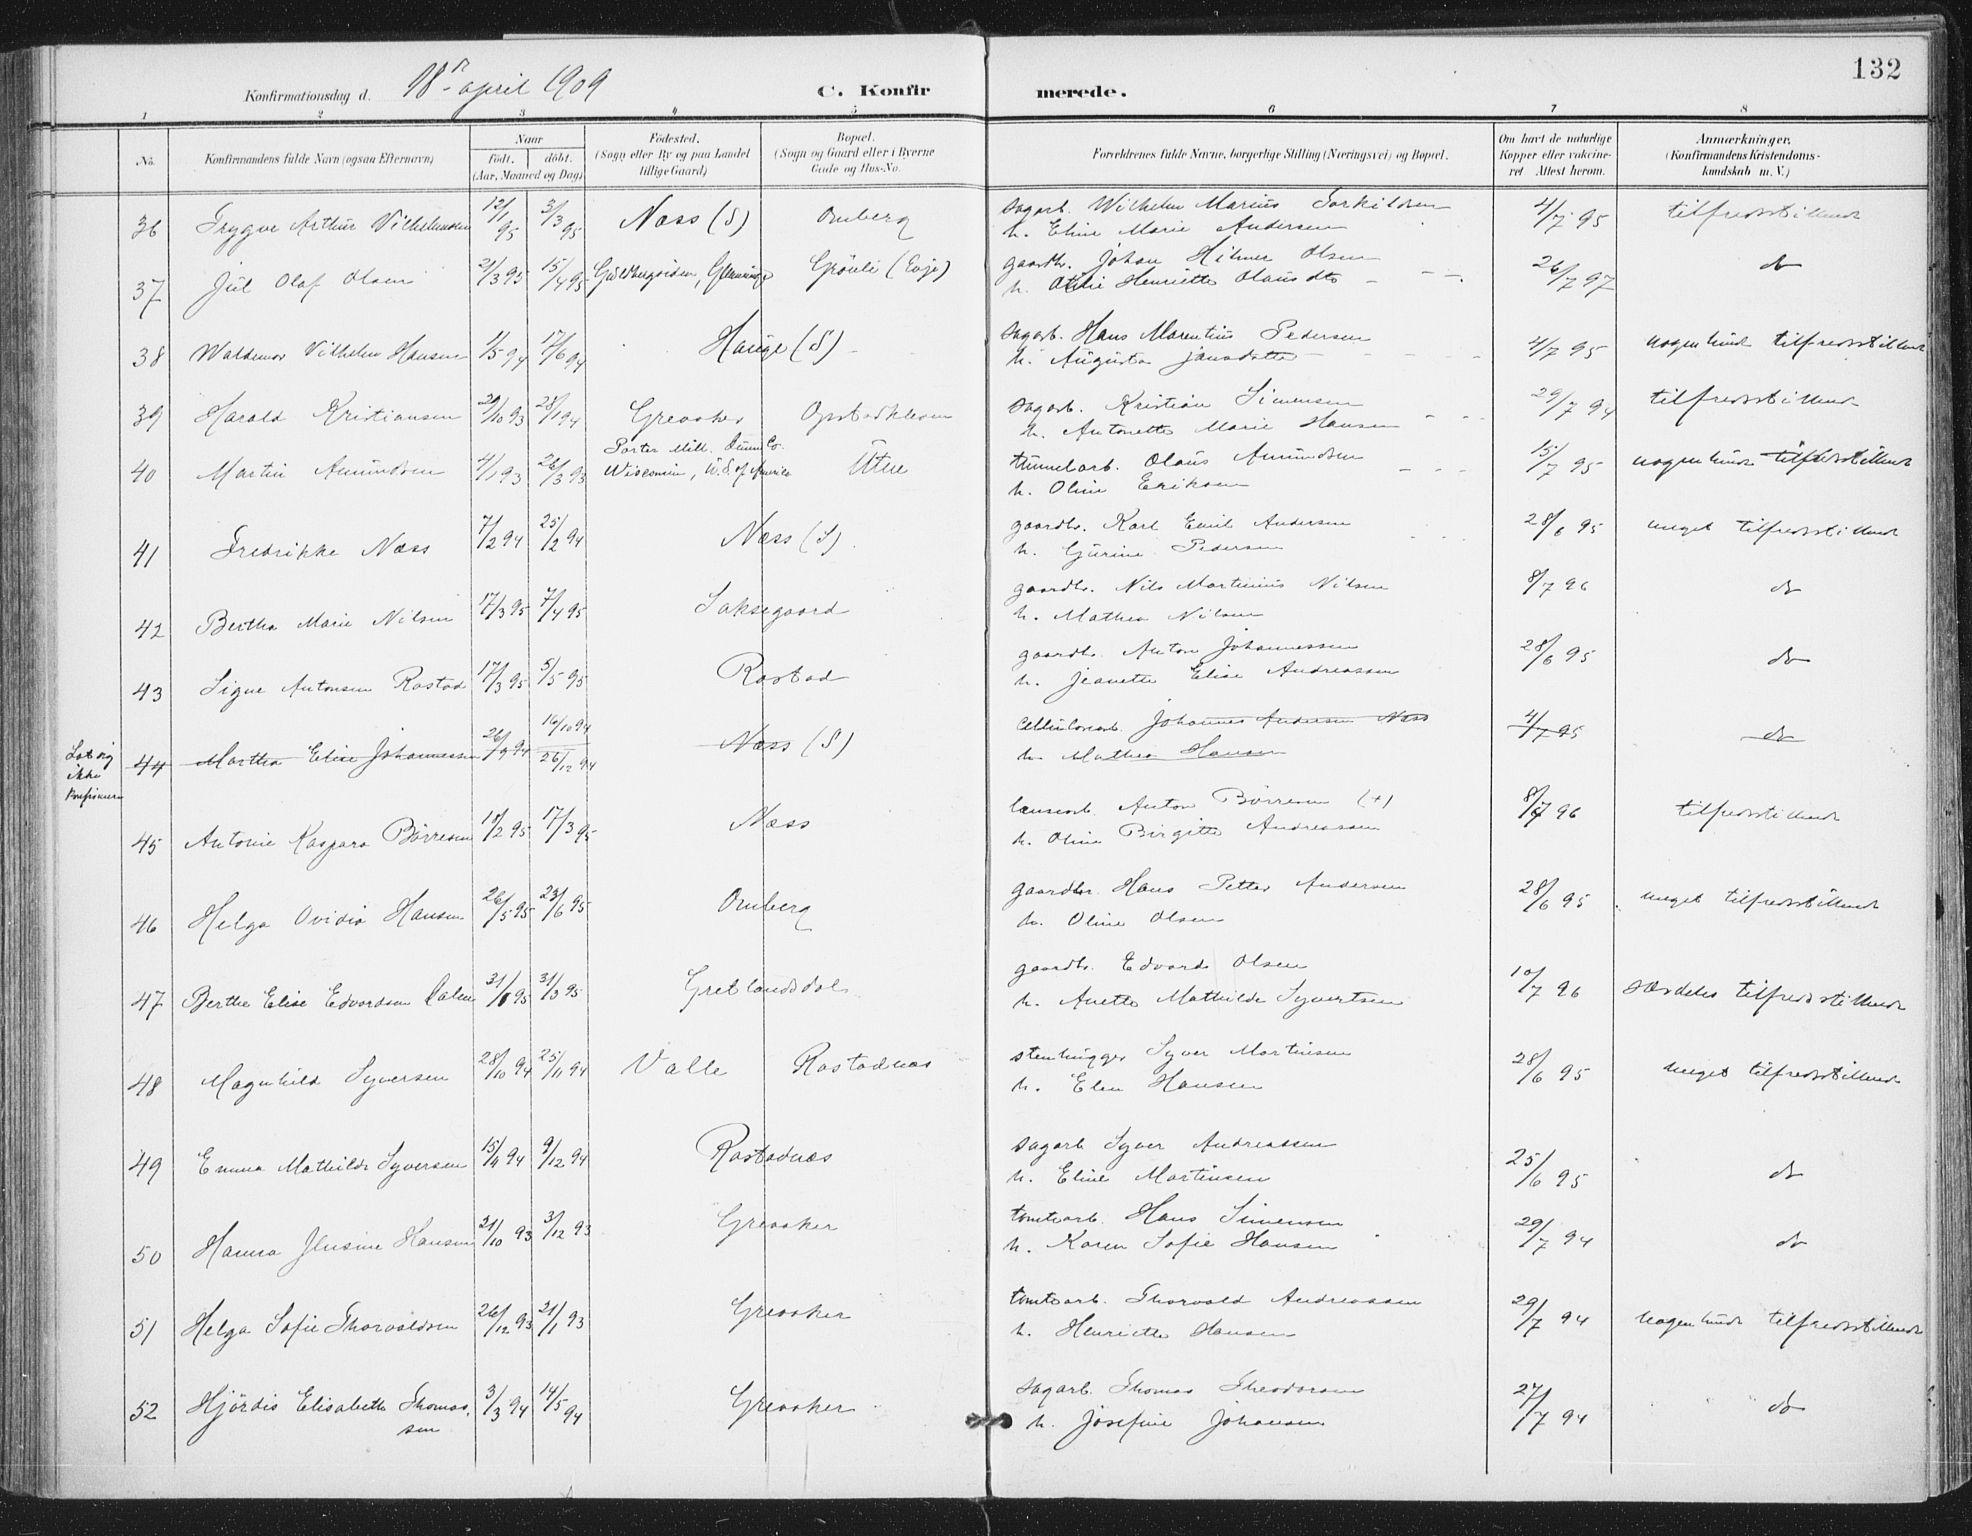 132
Konfirmationsdag d. 18de april 1909 C. Konfirmerede.
1 2 3 4 5 6 7 8
No. Konfirmandens fulde Navn (ogsaa Efternavn) Naar födt. döbt. (Aar, Maaned og Dag) Födested. (Sogn eller By og paa Landet tillige Gaard) Bopæl. (Sogn og Gaard eller i Byerne Gade og Hus-No. Forældrenes fulde Navne, borgerlige Stilling (Næringsvei) og Bopæl. Om havt de naturlige Kopper eller vakcineret Attest herom. Anmærkninger. (Konfirmandens Kristendomskundskab m. V.)
36 Trygve Arthur Vilhelmsen 12/1 95 3/3 95 Næss (S) Omberg sagarb. Wilhelm Marius Torkildsen 4/7 95 tilfredsstillende
h. Eline Marie Andersen
37 Jul Olaf Olsen 2/3 95 15/4 95 Guldbergsiden, Glemminge Grönli (Evje) gaardbr. Johan Hilmer Olsen 26/7 97 do
h. Henriette Olausdtr
38 Waldemar Vilhelm Hansen 1/5 94 17/6 94 Hauge (S) sagarb. Hans Marentius Pedersen 4/7 95 nogenlunde tilfredsstillende
h. Augusta Jansdatter
39 Harald Kristiansen 29/10 93 28/1 94 Greaaker Opstadkleven sagarb. Kristian Simensen 29/7 94 tilfredsstillende
h. Antonette Marie Hansen
40 Martin Amundsen 4/1 93 26/3 93 Porter Mill. Dunn Co. Wisconsin, U.S. of America Utne tunnelarb. Olaus Amundsen 15/7 95 nogenlunde tilfredsstillende
h. Oline Eriksen
41 Fredrikke Næss 7/2 94 25/2 94 Næss (S). gaardbr. Karl Emil Andersen 28/6 95 meget tilfredsstillende
h. Gurine Pedersen
42 Bertha Marie Nilsen 17/3 95 7/4 95 Saksegaard gaardbr. Nils Martinius Nilsen 8/7 96 do
h. Mathea Nilsen
43 Signe Antonsen Rostad 17/3 95 5/5 95 Rostad gaardbr. Anton Johannessen 28/6 95 do
h. Jeanette Elise Andreassen
Lot sig ikke konfirmere
44 Martha Elise Johannessen 26/9 94 16/10 94 26/12 94 Næss (S) Johannes Andersen Næss 4/7 95 do
h. Mathea Hansen
45 Antonie Kaspara Börresen 10/2 95 17/3 95 Næss Anton Börresen (+) 8/7 96 tilfredsstillende
h. Oline Birgitte Andreassen
46 Helga Ovidia Hansen 26/5 95 23/6 95 Omberg gaardbr. Hans Petter Andersen 28/6 95 meget tilfredsstillende
h. Oline Olsen
47 Berthe Elise Edvardsen Dalen 31/1 95 31/3 95 Gretlandsdal gaardbr. Edvard Olsen 10/7 96 særdeles tilfredsstillende
h. Anette Mathilde Syvertsen
48 Magnhild Syversen 28/10 94 25/11 94 Valle Rostadnæs stenhugger Syver Martinsen 28/6 95 meget tilfredsstillende
h. Elen Hansen
49 Emma Mathilde Syversen 15/11 94 9/12 94 Rostadnæs sagarb. Syver Andreassen 25/6 95 do
h. Eline Martinsen
50 Hanna Jensine Hansen 21/10 93 3/12 93 Greaaker tomtearb. Hans Simensen 29/7 94 do
h. Karen Sofie Hansen
51 Helga Sofie Thorvaldsen 26/12 93 21/1 93 Greaaker tomtearb. Thorvald Andreassen 29/7 94 nogenlunde tilfredsstillende
h. Henriette Hansen
52 Hjördis Elisabeth Thomassen 3/3 94 14/5 94 Greaaker sagarb. Thomas Theodorsen 27/7 94 do
h. Josefine Johansen